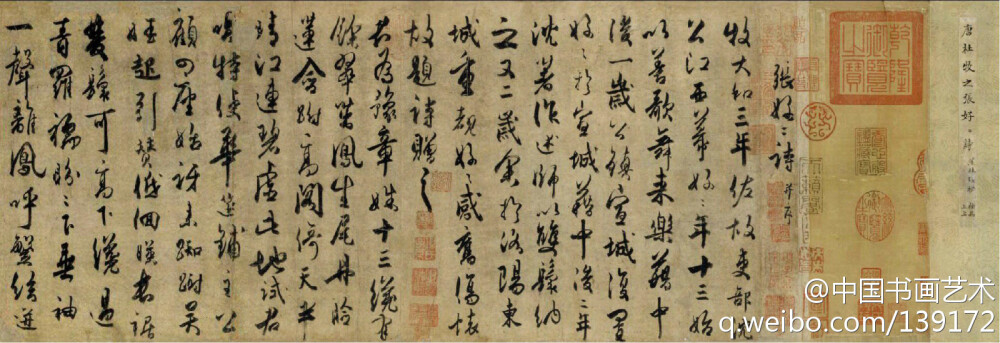 唐杜牧之張好〻詩
乾隆御覽之寶
張好〻詩 并序
牧大和三年佐故吏部沈
公江西幕好〻年十三始
以善歌舞来樂籍中
後一歲公鎮宣城復置
好〻於宣城籍中後二年
沈著作述師以雙鬟納
之又二歲余於洛陽東
城重覩好〻感舊傷懷
故題詩贈之
君為豫章姝十三纔有
餘翠茁鳳生尾丹臉
蓮含跗高閣倚天半
晴江連碧虛此地試君
唱特使華筵鋪主公
顧四座始訝来踟蹰吳
娃起引贊低佪暎長裾
雙鬟可高下纔過
青羅襦盼〻下垂袖
一聲離鳳呼繁絃迸
@中国书画艺术
q.weibo.com/139172